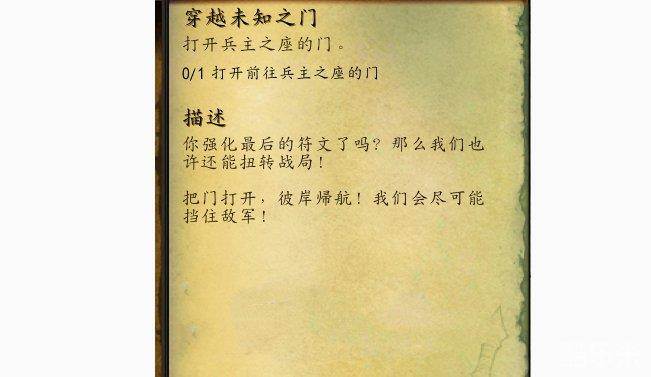 穿越未知之门
打开兵主之座的门。
0/1 打开前往兵主之座的门
描述
你强化最后的符文了吗？那么我们也
许还能扭转战局！
把门打开，彼岸帰航！我们会尽可能
挡住敌军！